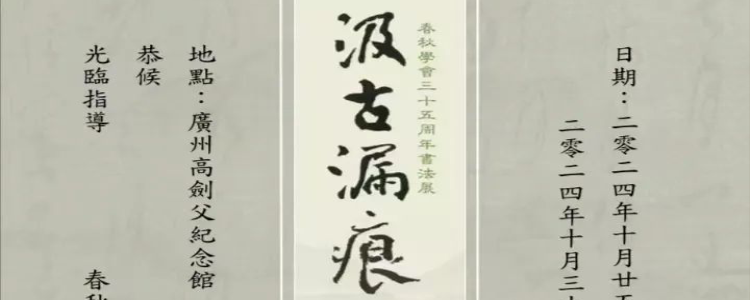 日期：二零二四年十月廿五
二零二四年十月三十
春秋學會三十五周年書法展
汲古漏痕
地點：廣州高劍父紀念館
恭候
光臨指導
春秋